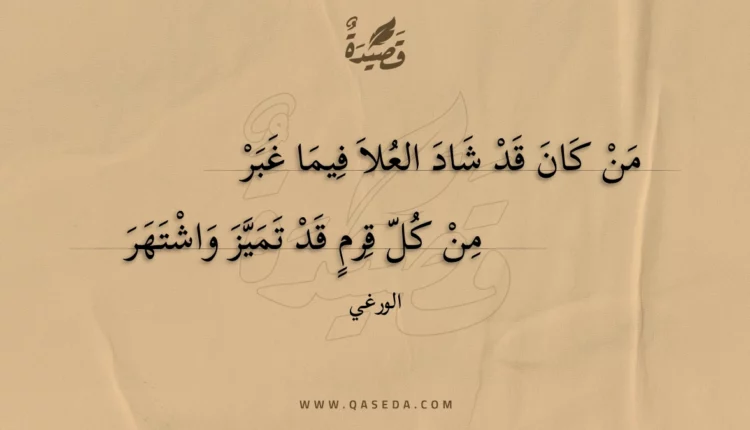 قَصِيدَةٌ
مَنْ كَانَ قَدْ شَادَ العُلاَ فِيمَا غَبَرْ
مِنْ كُلّ قِرِمٍ قَدْ تَمَيَّزَ وَاشْتَهَرَ
الورغي
WWW.QASEDA.COM